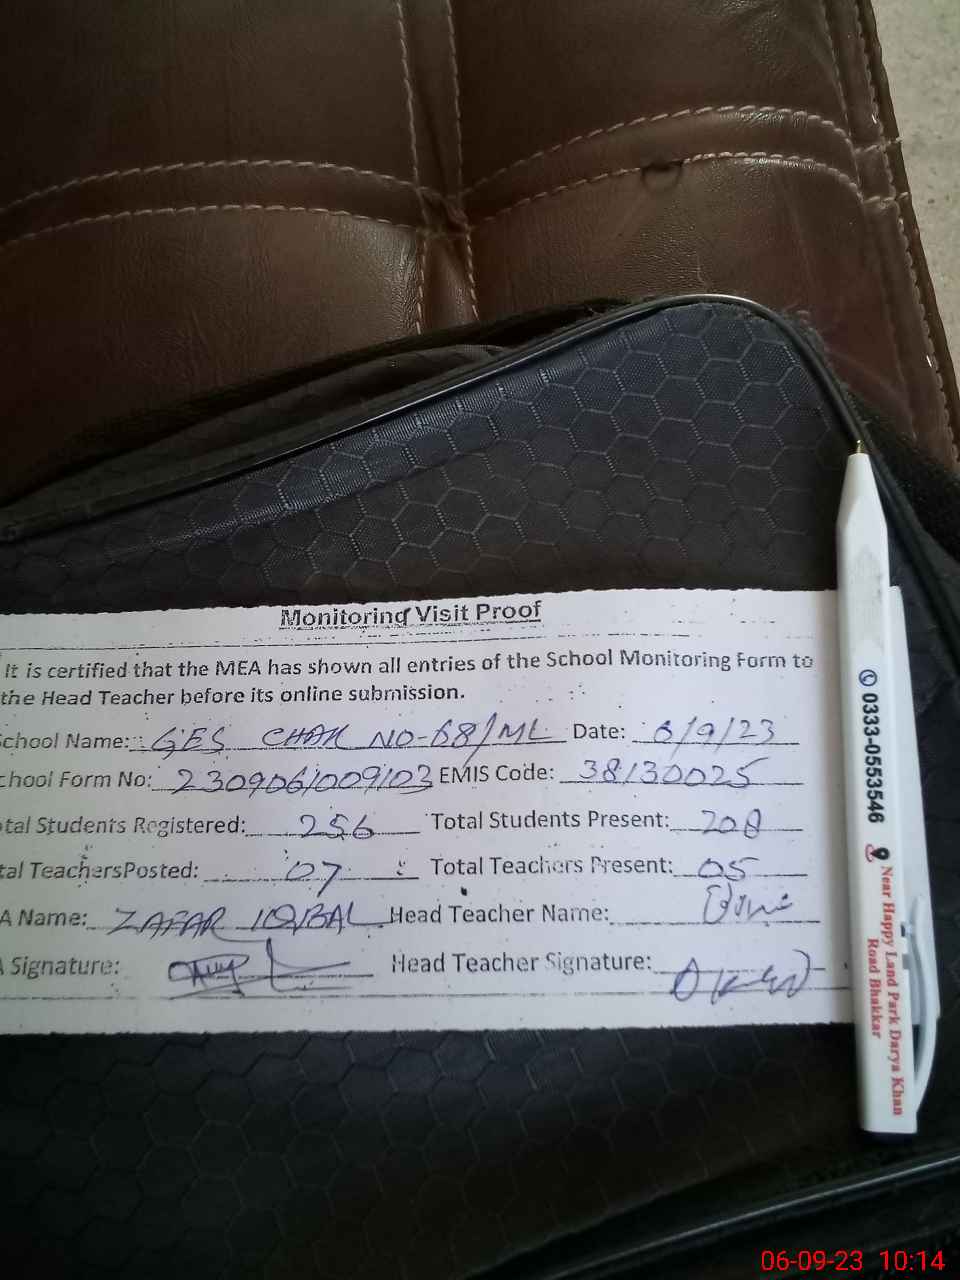 Monitoring Visit Proof
It is certified that the MEA has shown all entries of the School Monitoring Form to
the Head Teacher before its online submission.
chool Name: GES CHAK NO-68/ML Date: 6/9/23
chool Form No: 230906/009/03 EMIS Code: 38130025
tal Students Registered: 256 Total Students Present: 208
tal TeachersPosted: 07 Total Teachers Present: 05
A Name: ZAFAR IQBAL Head Teacher Name:
A Signature: Head Teacher Signature:
0333-0553546
Near Happy Land Park Darya Khan
Road Bhakkar
06-09-23 10:14